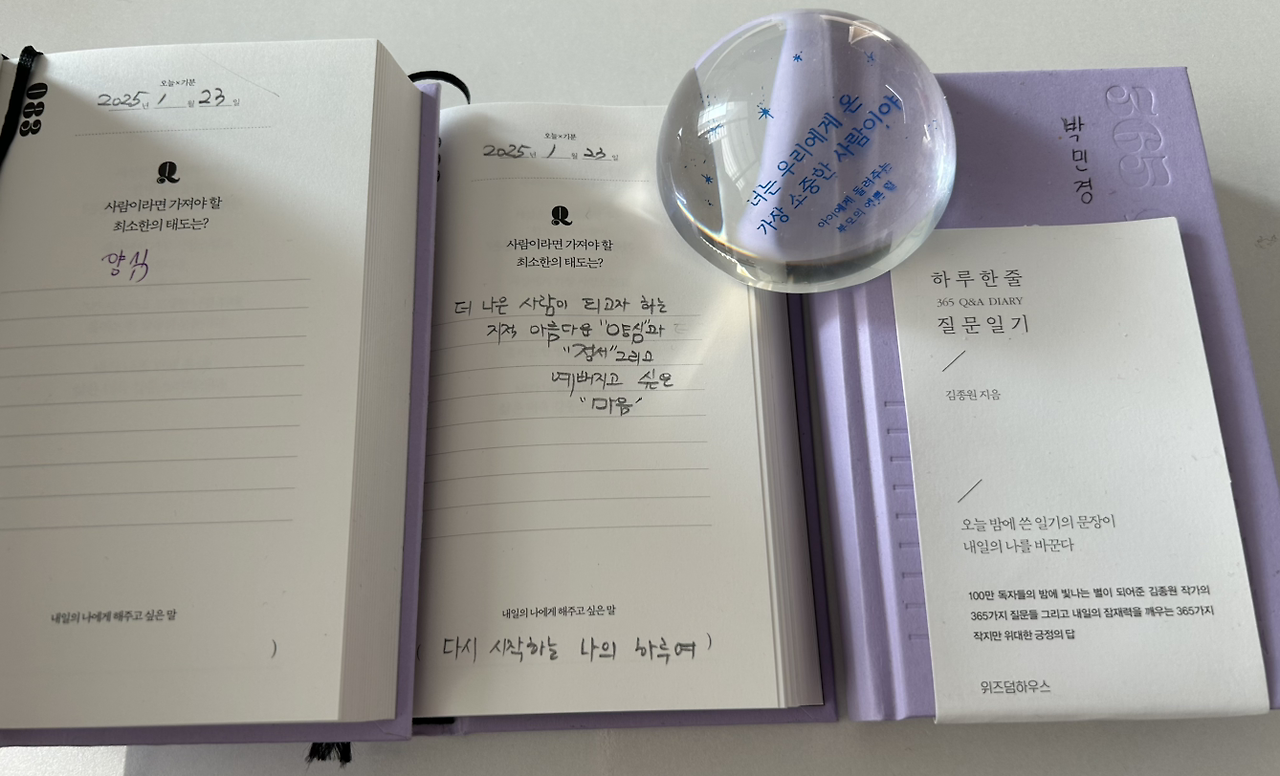 083
오늘×기분
2025년 1월 23일
Q
사람이라면 가져야 할
최소한의 태도는?
양심
내일의 나에게 해주고 싶은 말
)
오늘×기분
2025년 1월 23일
Q
사람이라면 가져야 할
최소한의 태도는?
더 나은 사람이 되고자 하는
지적 아름다운 "양심"과
"정서"그리고
예뻐지고 싶은
"마음"
내일의 나에게 해주고 싶은 말
( 다시 시작하는 나의 하루여 )
너는 우리에게 온
가장 소중한 사람이야
아이에게 들려주는
부모의 예쁜 말
365
박민경
하루한줄
365 Q&A DIARY
질문일기
김종원 지음
오늘 밤에 쓴 일기의 문장이
내일의 나를 바꾼다
100만 독자들의 밤에 빛나는 별이 되어준 김종원 작가의
365가지 질문들 그리고 내일의 잠재력을 깨우는 365가지
작지만 위대한 긍정의 답
위즈덤하우스